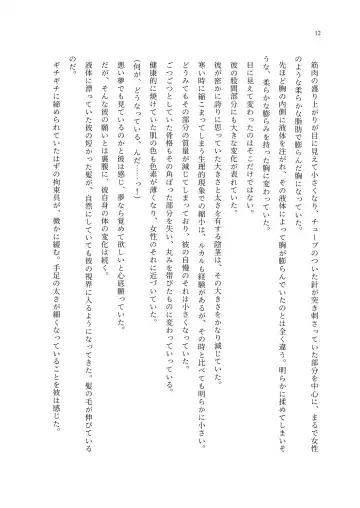 12
筋肉の盛り上がりが目に見えて小さくなり、チューブのついた針が突き刺さっていた部分を中心に、まるで女性
のような柔らかな脂肪で膨らんだ胸になっていた。
先ほど胸の内側に液体を注がれ、その液体によって胸が膨らんでいたのとは全く違う。明らかに揉めてしまいそ
うな、柔らかな膨らみを持った胸に変わっていた。
目に見えて変わったのはそこだけではない。
彼の股間部分にも大きな変化が表れていた。
彼が密かに誇りに思っていた大きさと太さを有する陰茎は、その大きさをかなり減じていた。
寒い時に縮こまってしまう生理的現象での縮小は、ルカルも経験があるが、その時と比べても明らかに小さい。
どうみてもその部分の質量が減じてしまっており、彼の自慢のそれは小さくなっていた。
ごつごつとしていた骨格もその角ばった部分を失い、丸みを帯びたものに変わっていっている。
健康的に焼けていた肌の色も色素が薄くなり、女性のそれに近づいていた。
（何が、どうなっている、んだ……っ！）
悪い夢でも見ているのかと彼は感じ、夢なら覚めて欲しいと心底願っていた。
だが、そんな彼の願いとは裏腹に、彼自身の体の変化は続く。
液体に漂っていた彼の短かった髪が、自然にしていても彼の視界に入るようになってきた。髪の毛が伸びている
のだ。
ギチギチに締められていたはずの拘束具が、微かに緩む。手足の太さが細くなっていることを彼は感じた。